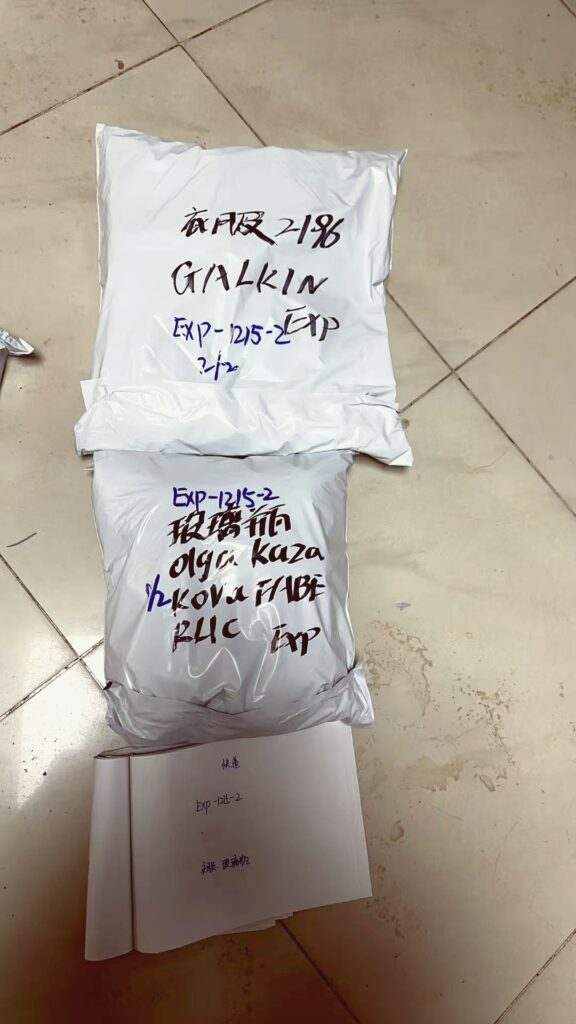 衣服 2196
GALKIN
Exp
EXP-1215-2
2/2
Exp-1215-2
玻璃瓶
olga kaza
1/2
kova FABE
RLIC
Exp
快递
Exp-1215-2
衣服·玻璃瓶